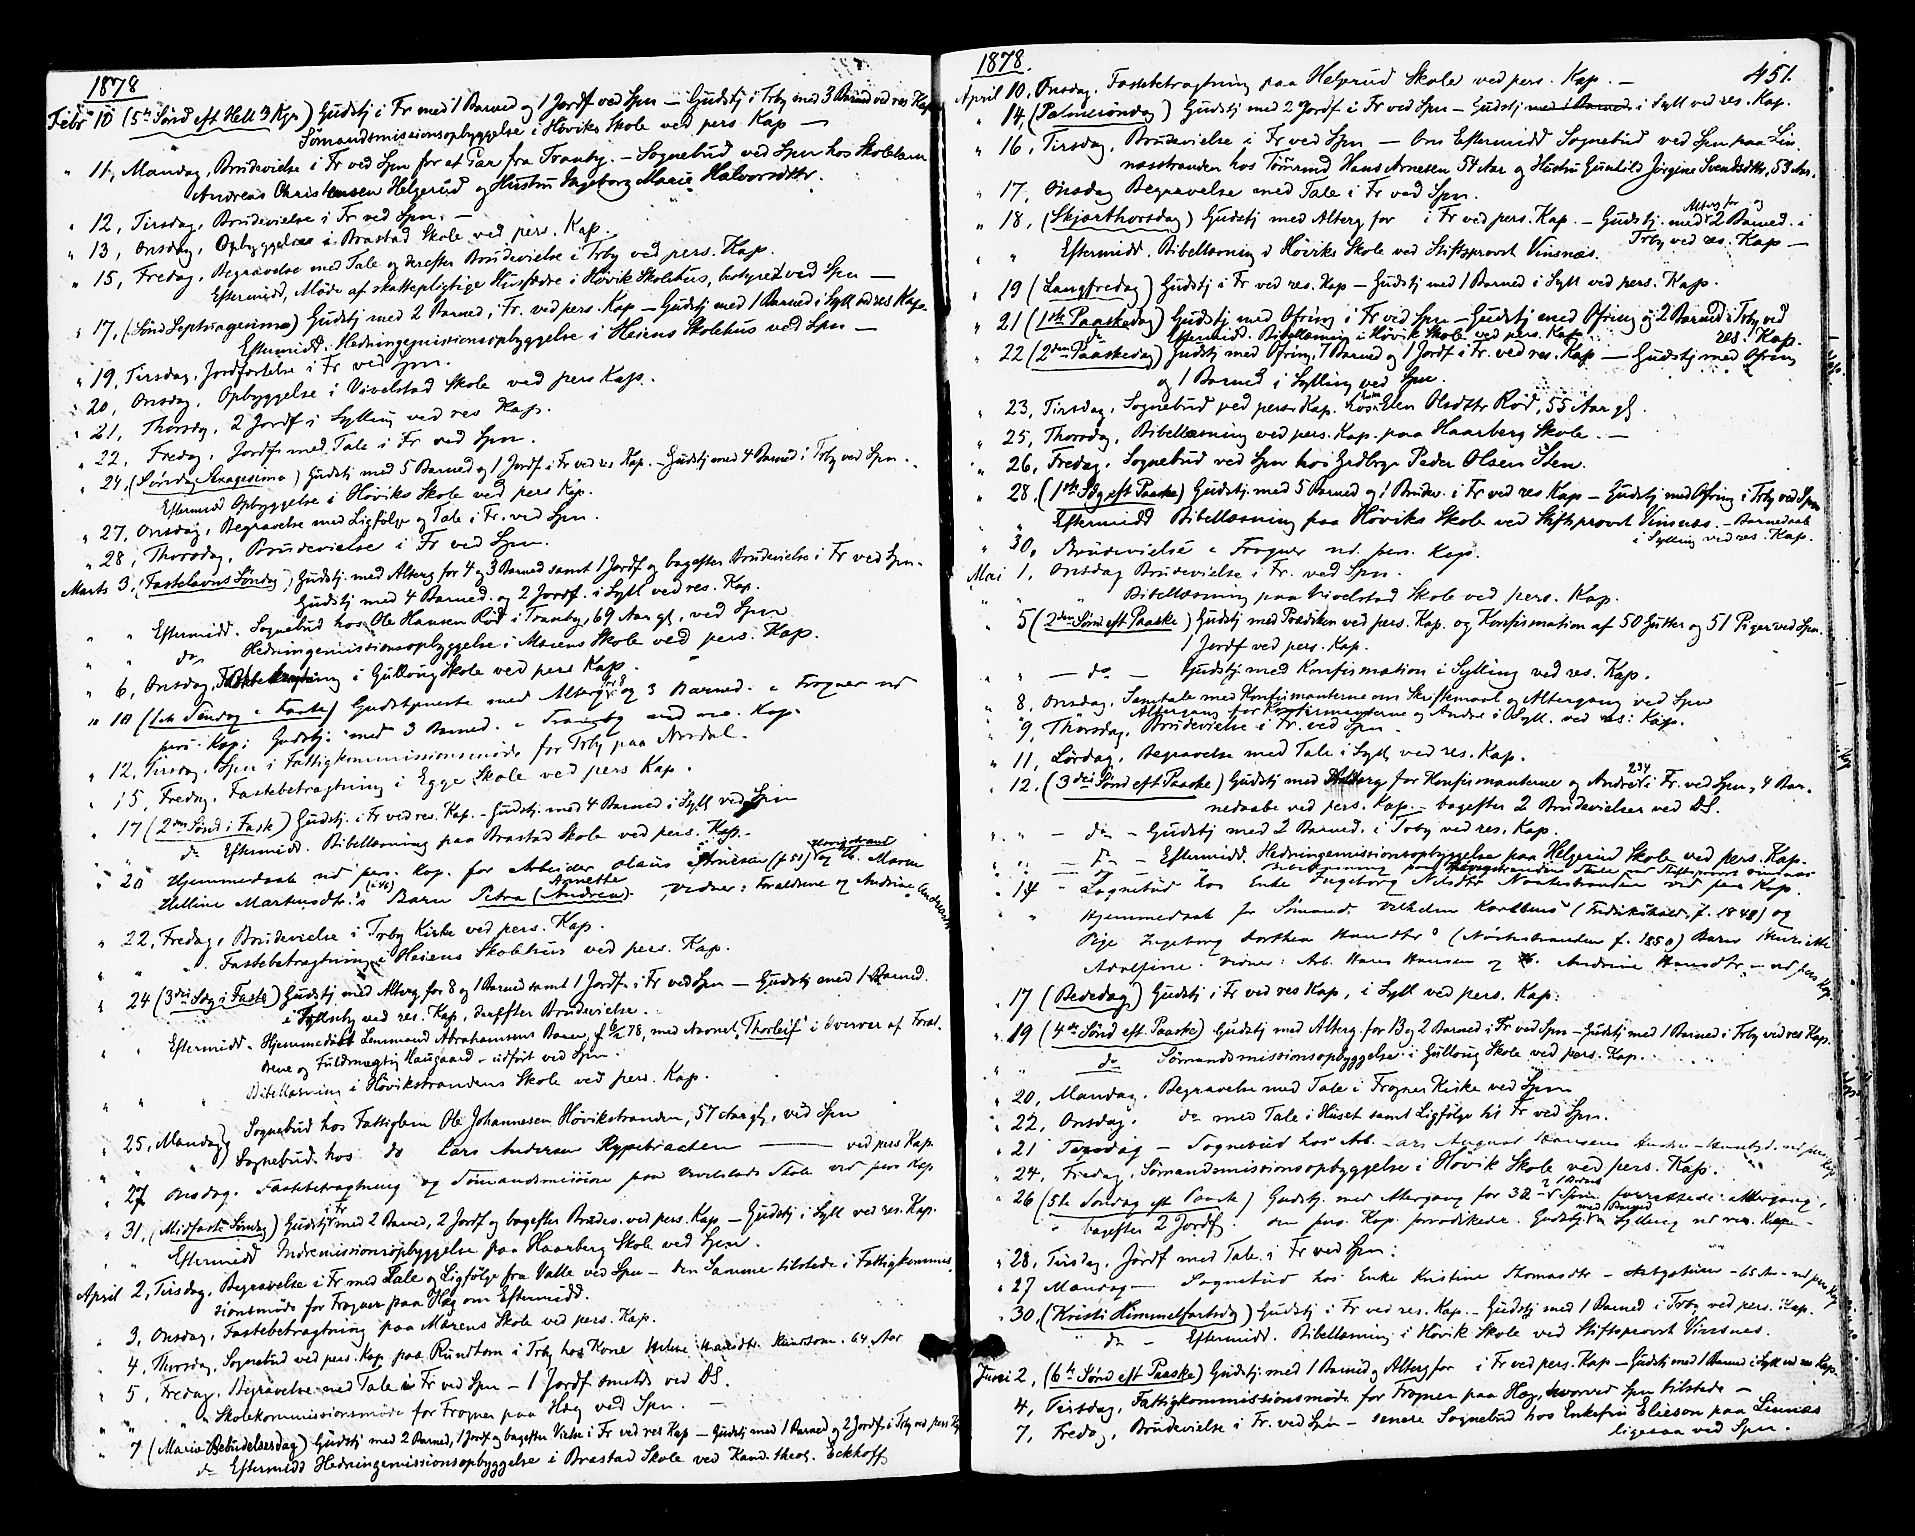 1878
Febr 10 (5te Sønd eft Hell 3 Kgr) Gudstj i Fr med 1 Barned og 1 Jordf ved Spr — Gudstj i Trby med 3 Barned ved res Kap
Sømandsmissionsopbyggelse i Høviks Skole ved pers. Kap —
" 11, Mandag, Brudevielse i Fr ved Spr for et Par fra Tranby. — Sognebud ved Spr hos Skolelærer
Andreas Christensen Helgerud og Hustru Ingeborg Marie Halvorsdttr.
" 12, Tirsdag, Brudevielse i Fr ved Spr. —
" 13, Onsdag, Opbyggelse i Brastad Skole ved pers. Kap.
" 15, Fredag, Begravelse med Tale og derefter Brudevielse i Trby ved pers. Kap.
Eftermidd, Møde af skattepligtige Husfædre i Høvik Skolehus, bestyret ved Spr —
" 17, (Sønd Septuagesima) Gudstj med 2 Barned, i Fr. ved pers. Kap — Gudstj med 1 Barned i Syll ved res Kap.
Eftermidd. Hedningemissionsopbyggelse i Heiens Skolehus ved Spr —
" 19, Tirsdag, Jordfæstelse i Fr ved Spr.
" 20, Onsdag, Opbyggelse i Vivelstad Skole ved pers Kap.
" 21, Thorsdg, 2 Jordf i Sylling ved res Kap.
" 22, Fredag, Jordf. med Tale i Fr ved Spr.
" 24, (Søndag Sexagesima) Gudstj med 5 Barned og 1 Jordf i Fr ved res Kap. — Gudstj med 4 Barned i Trby ved Spr.
Eftermidd Opbyggelse i Høviks Skole ved pers Kap.
" 27, Onsdag, Begravelse med Ligfølge og Tale i Fr. ved Spr.
" 28, Thorsdag, Brudevielse i Fr ved Spr.
Marts 3, (Fastelavns Søndag) Gudstj. med Alterg for 4 og 3 Barned samt 1 Jordf og bagefter Brudevielse i Fr ved Spr.
Gudstj med 4 Barned. og 2 Jordf. i Syll ved res. Kap.
" " Eftermidd. Sognebud hos Ole Hansen Rød i Tranby, 69 Aar gl, ved Spr
" " do Hedningemissionsopbyggelse i Mørens Skole ved pers. Kap.
" 6, Onsdag, Fastebetragtning i Gulloug Skole ved pers Kap.
" 10 (1ste Søndag i Faste) Gudstjeneste med Alterg for 8 og 3 Barned. i Frogner ved
pers. Kap; Gudstj: med 3 Barned. i Tranby ved res. Kap.
" 12, Tirsdag. Spr i Fattigkommissionsmøde for Trby paa Nordal.
" 15, Fredag, Fastebetragtning i Egge Skole ved pers Kap.
" 17 (2den Sønd i Fast) Gudstj. i Fr ved res. Kap. — Gudstj. med 4 Barned i Syll ved Spr
" do Eftermidd. Bibellæsning paa Brastad Skole ved pers. Kap. —
" 20 Hjemmedaab ved pers. Kap. for Arbeider Olaus Arnesen (f 50) og H. Maren
Helline Martinsdtr.s Barn Petra (Andrea) Annette Vidner: Forældrene og Andrine Andersen
" 22, Fredag, Brudevielse i Trby Kirke ved pers. Kap.
" " " Fastebetragtning i Heiens Skolehus ved pers. Kap.
" 24 (3die Sdg i Faste) Gudstj med Alterg for 8 og 1 Barned samt 1 Jordf. i Fr ved Spr — Gudstj med 1 Barned.
i Trby ved res. Kap, derefter Brudevielse.
" " Eftermidd. Hjemmedøbt Lensmand Abrahamsens Barn, f 6/2 78, med Navnet „Thorleif" i Overvær af Foræl-
drene og Fuldmægtig Haugaard — udført ved Spr.
" " " Bibellæsning i Høvikstrandens Skole ved pers. Kap.
" 25, Mandag, Sognebud hos Fattiglem Ole Johannesen Høvikstranden, 57 Aar gl, ved Spr
" " Sognebud hos do Lars Andersen Rypebraaten — ved pers Kap.
" 27 Onsdag. Fastebetragtning og Sømandsmission paa Vivelstads Skole ved pers Kap
" 31, (Midfaste Søndag) Gudstj i Fr med 2 Barned, 2 Jordf og bagefter Brudev. ved pers. Kap — Gudstj i Syll ved res. Kap.
" " Eftermidd Indremissionsopbyggelse paa Haarberg Skole ved Spr.
April 2, Tirsdag, Begravelse i Fr med Tale og Ligfølge fra Valle ved Spr — den Samme tilstede i Fattigkommis-
sionsmøde for Frogner paa Hæg om Eftermidd.
" 3, Onsdag, Fastebetragtning paa Mørens Skole ved pers. Kap.
" 4, Thorsdag, Sognebud ved pers. Kap. paa Rundtom i Trby hos Kone Helene 64 Aar
" 5, Fredag, Begravelse med Tale i Fr ved Spr — 1 Jordf smstds ved DS.
" " " Skolekommissionsmøde for Frogner paa Hæg ved Spr. —
" 7 (Mariæ Bebudelsesdag) Gudstj med 2 Barned, 1 Jordf og bagefter Vielse i Fr ved res Kap — Gudstj med 1 Barned og 2 Jordf. i Trby ved pers Kap
do Eftermidd Hedningemissionsopbyggelse i Brastad Skole ved Kand. theol. Eckhoff
1878. 451.
April 10, Onsdag, Fastebetragtning paa Helgerud Skole ved pers. Kap. —
" 14, (Palmesøndag) Gudstj med 2 Jordf i Fr ved Spr — Gudstj med 1 Barned i Syll ved res. Kap.
" 16, Tirsdag, Brudevielse i Fr ved Spr — Om Eftermidd Sognebud ved Spr paa Lin-
næsstranden hos Tømrmd Hans Arnesen 54 Aar og Hustru Gunhild Jørgine Svendsdttr, 53 Aar.
" 17, Onsdag Begravelse med Tale i Fr ved Spr.
" 18, (Skjærthorsdag) Gudstj med Alterg for i Fr ved pers. Kap. — Gudstj. med Alterg for og 2 Barned. i
Trby ved res. Kap —
" " Eftermidd. Bibellæsning i Høviks Skole ved Stiftsprovst Vinsnæs.
" 19 (Langfredag) Gudstj i Fr ved res. Kap — Gudstj med 1 Barned i Syll ved pers. Kap.
" 21 (1ste Paaskedag) Gudstj med Ofring i Fr ved Spr — Gudstj med Ofring og 2 Barned i Trby ved
do Eftermidd. Bibellæsning i Høvik Skole ved pers. Kap res. Kap.
" 22 (2den Paaskedag) Gudstj med Ofring, 7 Barned og 1 Jordf i Fr. ved res. Kap — Gudstj med Ofring
og 1 Barned i Sylling ved Spr.
" 23, Tirsdag, Sognebud ved pers. Kap. hos Elen Olsdttr Rød, 55 Aar gl.
" 25, Thorsdag, Bibellæsning ved pers. Kap. paa Haarberg Skole. —
" 26, Fredag, Sognebud ved Spr hos Grdbrgr Peder Olsen Sten.
" 28, (1ste Sdg eft Paaske) Gudstj. med 5 Barned og 1 Brudev. i Fr ved res Kap — Gudstj med Ofring i Trby ved Spr
" " Eftermidd Bibellæsning paa Høviks Skole ved Stiftsprovst Vinsnæs. — Barnedaab
i Sylling ved res. Kap.
" 30, Brudevielse i Frogner ved pers. Kap.
Mai 1, Onsdag Brudevielse i Fr. ved Spr.
" " " Bibellæsning paa Vivelstad Skole ved pers. Kap.
" 5 (2den Sønd eft Paaske) Gudstj med Prædiken ved pers. Kap. og Konfirmation af 50 Gutter og 51 Piger ved Spr.
1 Jordf ved pers. Kap.
" " — do — Gudstj med Konfirmation i Sylling ved res. Kap.
" 8, Onsdag, Samtale med Konfirmanterne om Skriftemaal og Altergang ved Spr
Altergang for Konfirmanterne og Andre i Syll. ved res. Kap.
" 9, Thorsdag, Brudevielse i Fr. ved Spr —
" 11, Lørdag, Begravelse med Tale i Syll ved res. Kap.
" 12, (3die Sønd eft Paaske) Gudstj med Alterg for Konfirmanterne og Andre 234 i Fr. ved Spr, 4 Bar-
nedaabe ved pers. Kap — bagefter 2 Brudevielser ved DS.
" " — do — Gudstj med 2 Barned. i Trby ved res. Kap.
" " — do — Eftermidd. Hedningemissionsopbyggelse paa Helgerud Skole ved pers. Kap.
Bibellæsning paa Høvigstrandens Skole ved Stiftsprovst Vinsnæs
" 14 — Sognebud hos Enke Ingeborg Nilsdtr Nærstranden ved pers Kap.
" Hjemmedaab for Sømand Vilhelm Karlsens (Fredrikshald, f. 1848) og
Pige Ingeborg Dorthea Hansdtr.s (Nærstranden f. 1850) Barn Henriette
Adolfine. Vidner: Arb. Hans Hansen og H. Andrine Hansdtr. — ved pers Kap.
" 17 (Bededag) Gudstj i Fr ved res Kap, i Syll ved pers. Kap.
" 19 (4de Sønd eft. Paaske) Gudstj med Alterg. for 13 og 2 Barned i Fr ved Spr — Gudstj med 1 Barned i Trby ved res Kap.
" " do Sømandsmissionsopbyggelse i Gulloug Skole ved pers. Kap.
" 20, Mandag. Begravelse med Tale i Frogner Kirke ved Spr
" 22, Onsdag. do med Tale i Huset samt Ligfølge til Fr ved Spr.
" 21 Tirsdag — Sognebud hos Arb. Lars August Hansens ved pers Kap
" 24, Fredag, Sømandsmissionsopbyggelse i Høvik Skole ved pers. Kap.
" 26 (5te Søndag eft Paaske) Gudstj. med Altergang for 32 — Spr. forrettede Altergang,
bagefter 2 Jordf. den pers. Kap. prædikede. Gudstj. i Sylling ved res. Kap —
" 28, Tirsdag, Jordf med Tale i Fr ved Spr.
" 27 Mandag — Sognebud hos Enke Kristine Thomasdtr — — 65 Aar — ved pers Kap
" 30, (Kristi Himmelfartsdag) Gudstj i Fr ved res. Kap. — Gudstj med 1 Barned i Trby ved pers. Kap.
" do — Eftermidd. Bibellæsning i Høvik Skole ved Stiftsprovst Vinsnæs.
Juni 2, (6te Sønd eft Paaske) Gudstj med 1 Barned og Alterg for i Fr ved pers. Kap — Gudstj med 1 Barned i Syll ved res Kap.
" 4, Tirsdag, Fattigkommissionsmøde for Frogner paa Hæg, hvorved Spr tilstede —
" 7, Fredag, Brudevielse i Fr. ved Spr — senere Sognebud hos Enkefru Elieson paa Linnæs
ligesaa ved Spr.